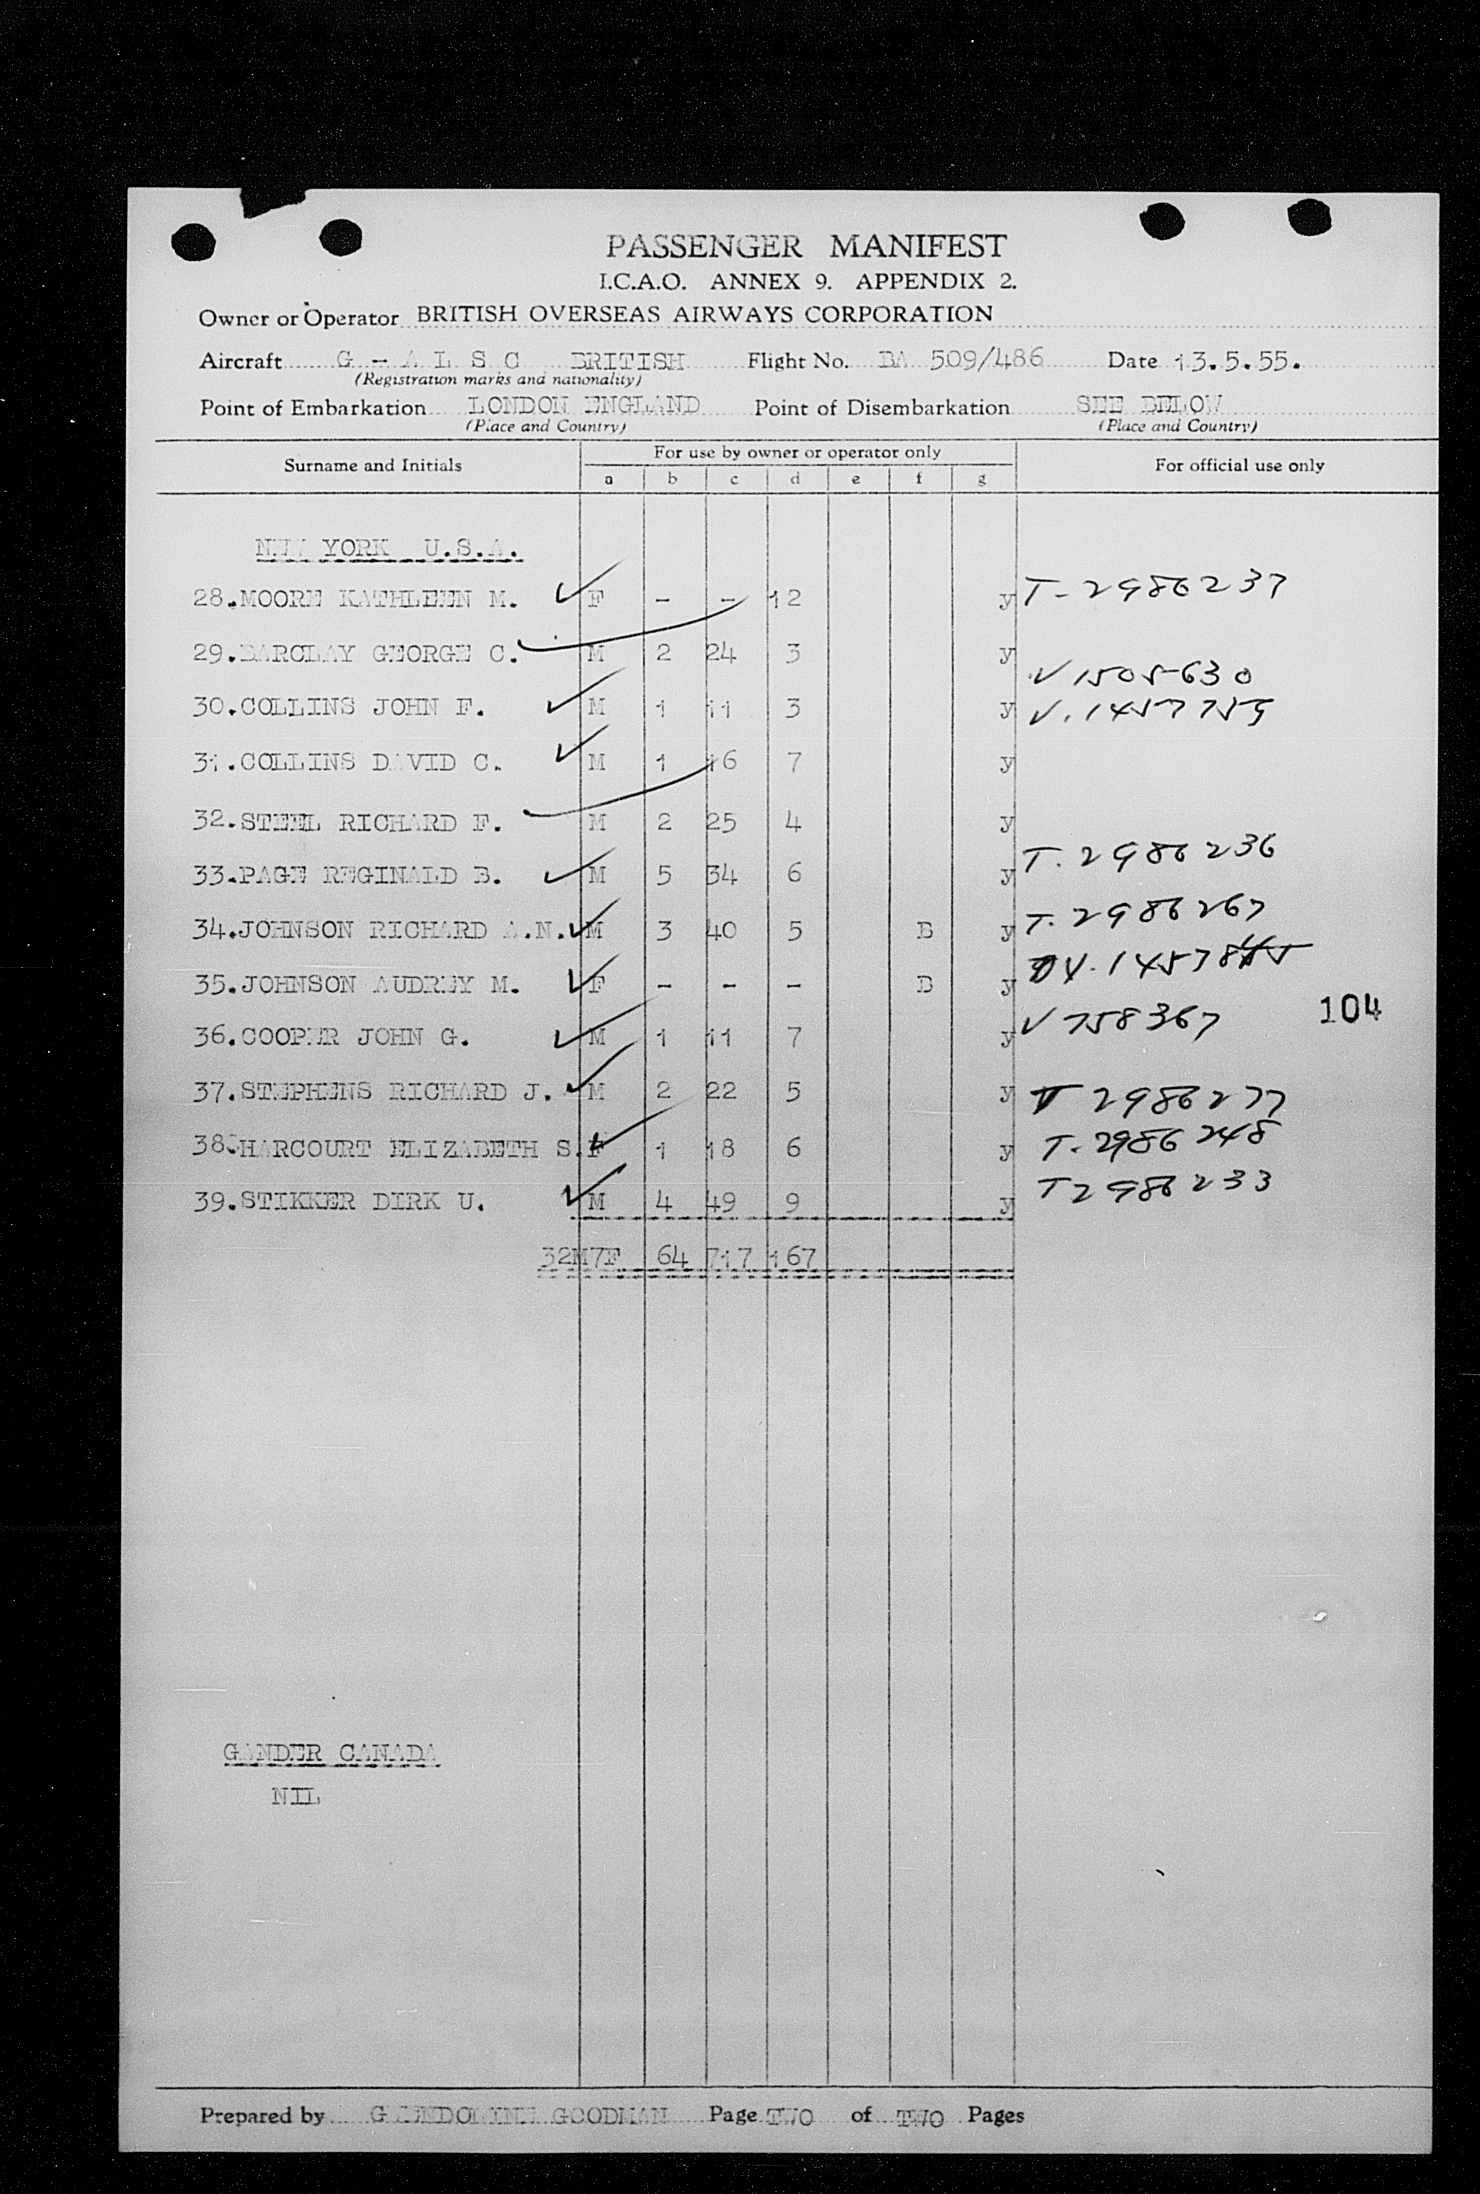 PASSENGER MANIFEST
I.C.A.O. ANNEX 9. APPENDIX 2.
Owner or Operator BRITISH OVERSEAS AIRWAYS CORPORATION
Aircraft G - A L S C BRITISH Flight No. BA 509/486 Date 13.5.55.
(Registration marks and nationality)
Point of Embarkation LONDON ENGLAND Point of Disembarkation SEE BELOW
(Place and Country) (Place and Country)
Surname and Initials For use by owner or operator only For official use only
a b c d e f g
NEW YORK U.S.A.
28. MOORE KATHLEEN M. F - - 12 y T-2986237
29. BARCLAY GEORGE C. M 2 24 3 y V1505630
30. COLLINS JOHN F. M 1 11 3 y V.1457759
31. COLLINS DAVID C. M 1 16 7 y
32. STEEL RICHARD F. M 2 25 4 y
33. PAGE REGINALD B. M 5 34 6 y T.2986236
34. JOHNSON RICHARD A.N. M 3 40 5 B y T.2986267
35. JOHNSON AUDREY M. F - - - B y
36. COOPER JOHN G. M 1 11 7 y V758367
104
37. STEPHENS RICHARD J. M 2 22 5 y T2986277
38. HARCOURT ELIZABETH S. F 1 18 6 y T.2986248
39. STIKKER DIRK U. M 4 49 9 y T2986233
32M7F 64 717 167
GANDER CANADA
NIL
Prepared by GOODMAN Page TWO of TWO Pages